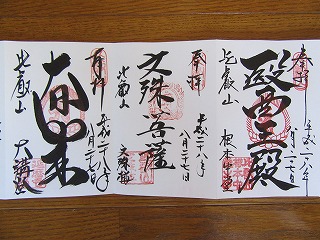 奉拝
平成二十八年
八月二十七日
醫王殿
比叡山
根本中堂
奉拝
平成二十八年
八月二十七日
文殊菩薩
比叡山
文殊楼
奉拝
平成二十八年
八月二十七日
大日如来
比叡山
大講堂